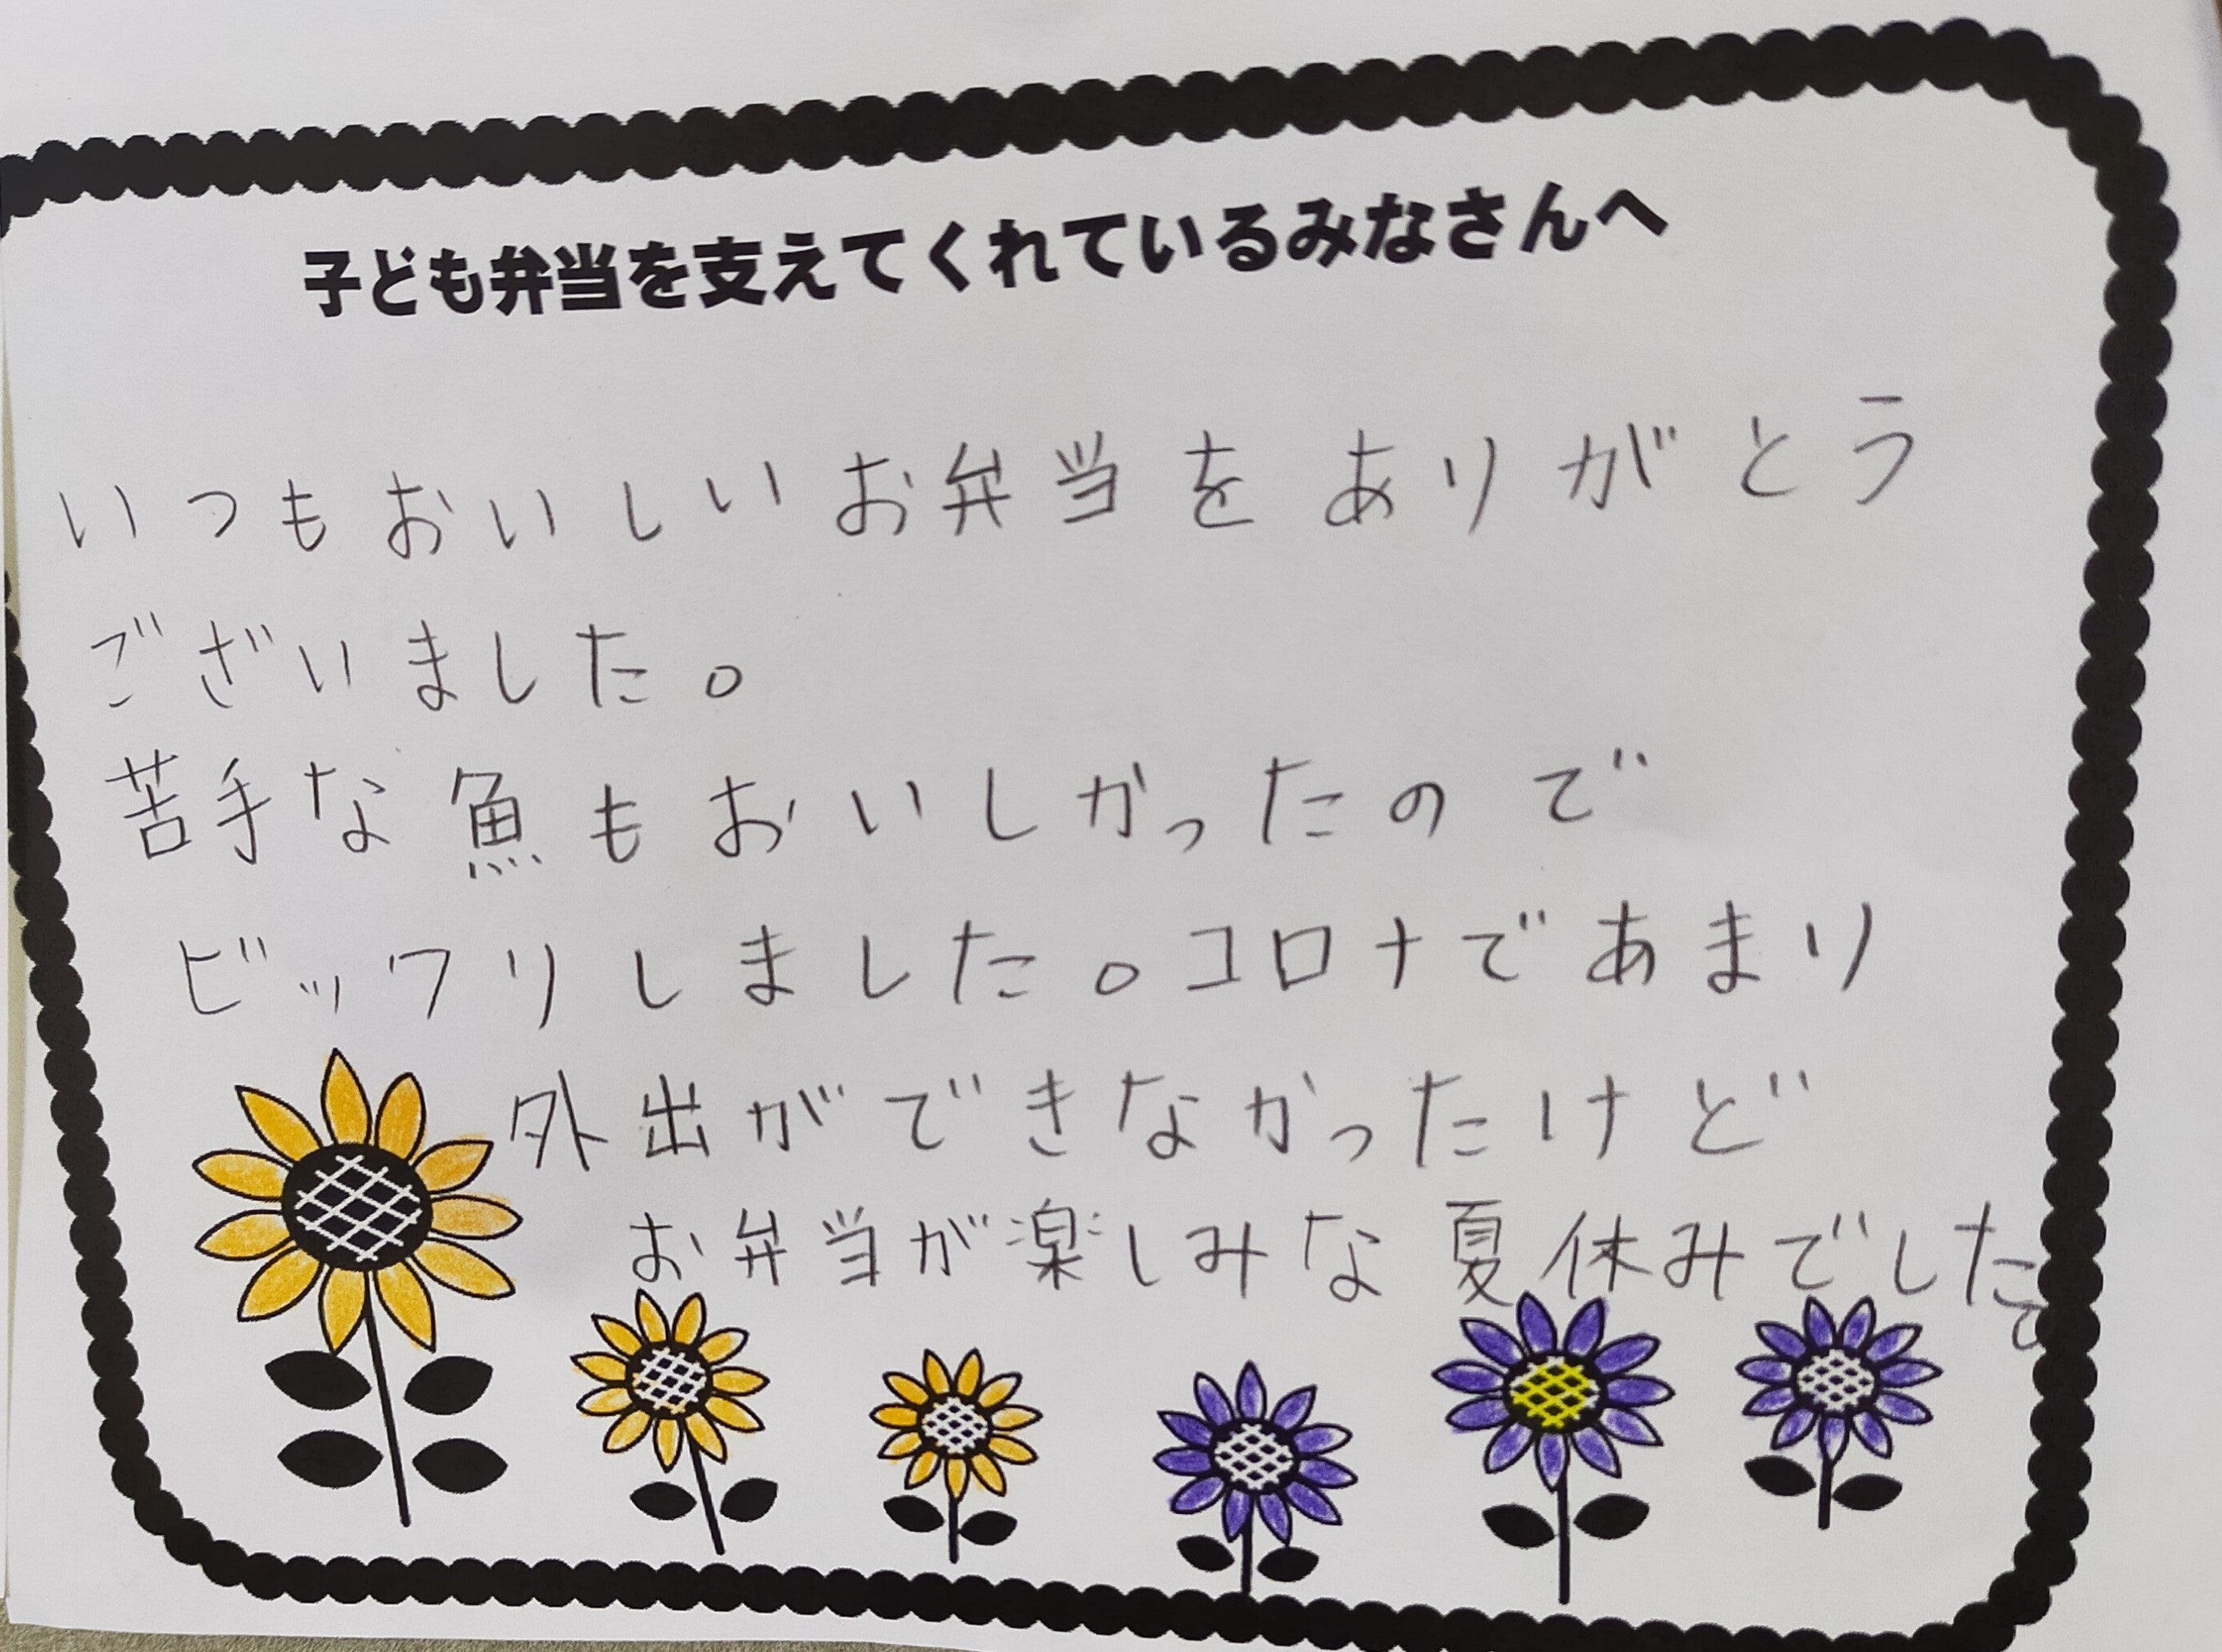 子ども弁当を支えてくれているみなさんへ
いつもおいしいお弁当をありがとう
ございました。
苦手な魚もおいしかったので
ビックリしました。コロナであまり
外出ができなかったけど
お弁当が楽しみな夏休みでした。